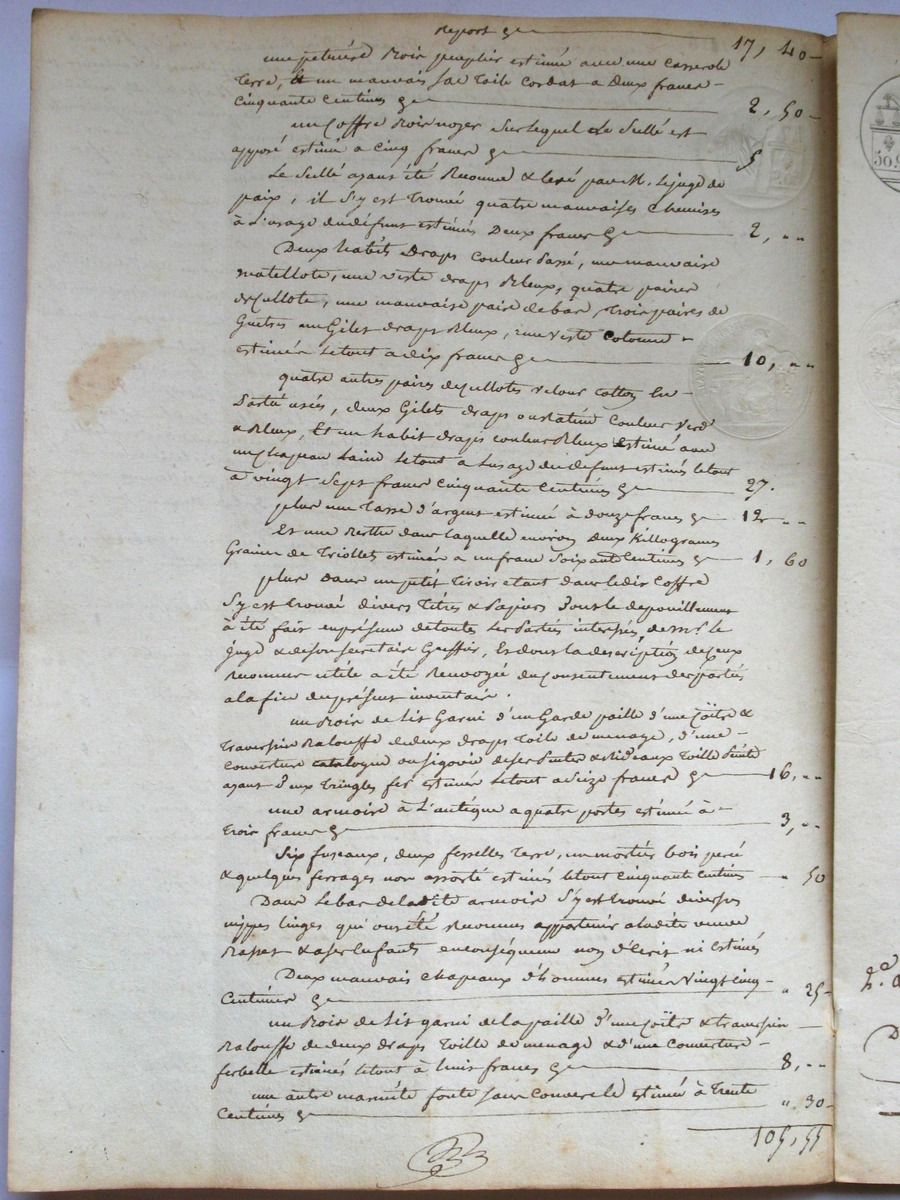 Report 17, 40
une petrière Bois peuplier estimée avec une casserole
Terre, et un mauvais sac Toile Cordat a Deux francs
cinquante centimes 2, 50
un Coffre Bois noyer sur lequel le scellé est
apposé estimé a cinq francs 5
Le scellé ayant été Reconnu & levé par M. le juge de
paix, il s'y est trouvé quatre mauvaises chemises
à l'usage du défunt estimés Deux francs 2, "
Deux habits Draps Couleur Passé, une mauvaise
matellote, une veste draps Bleux, quatre paires
de Cullote, une mauvaise paire de bas, trois paires de
Guetres un Gilet draps Bleux, une veste Cotonne
estimés le tout a dix francs 10, "
quatre autres paires de Cullotes velour Cotton en
Partie usés, deux Gilets draps ou Ratine Couleur verd
& Bleux, Et un habit draps couleur Bleux estimé avec
un chapeau Laine le tout a l'usage du defunt estimés le tout
à vingt sept francs cinquante centimes 27.
plus une Tasse d'argent estimée à douze francs 12 "
Et une Berthe dans laquelle environ Deux Killogrames
Graines de Triollet estimés a un franc soixante Centimes 1, 60
plus dans un petit tiroir etant dans ledit Coffre
s'y est trouvé divers Titres & Papiers Dont le depouillement
à été fait en présence de toutes les Parties interessés, de Mr. le
juge & de son secretaire Greffier, Et dont la description de ceux
Reconnus utile a été Renvoyée du Consentement des parties
a la fin du présent inventaire.
un Bois de Lit Garni d'un Garde paille d'une Coïtre &
traversin Balouffe de deux draps Toile de menage, d'une
couverture catalogne de ses Pentes & Rideaux Toille Peinte
ayant Deux Tringles fer estimés le tout a seize francs 16, "
une armoire à L'antique a quatre portes estimée à
trois francs 3, "
Six fuseaux, deux fesselles terre, un mortier bois percé
& quelques ferrages non assorti estimés le tout cinquante centimes " 50
Dans le bas de la dite armoire s'y est trouvé diverses
nippes linges qui ont été Reconnues appartenir a ladite veuve
Basset & a ses Enfants en conséquence non décrit ni Estimés
Deux mauvais Chapeaux d'hommes estimés vingt cinq
Centimes " 25
un Bois de Lit garni de la paille d'une Coïtre & traversin
Balouffe de deux draps Toille de menage & d'une Couverture
estimés le tout à huit francs 8, "
une autre marmite fonte sans Couvercle estimée à Trente
Centimes " 30
105, 55